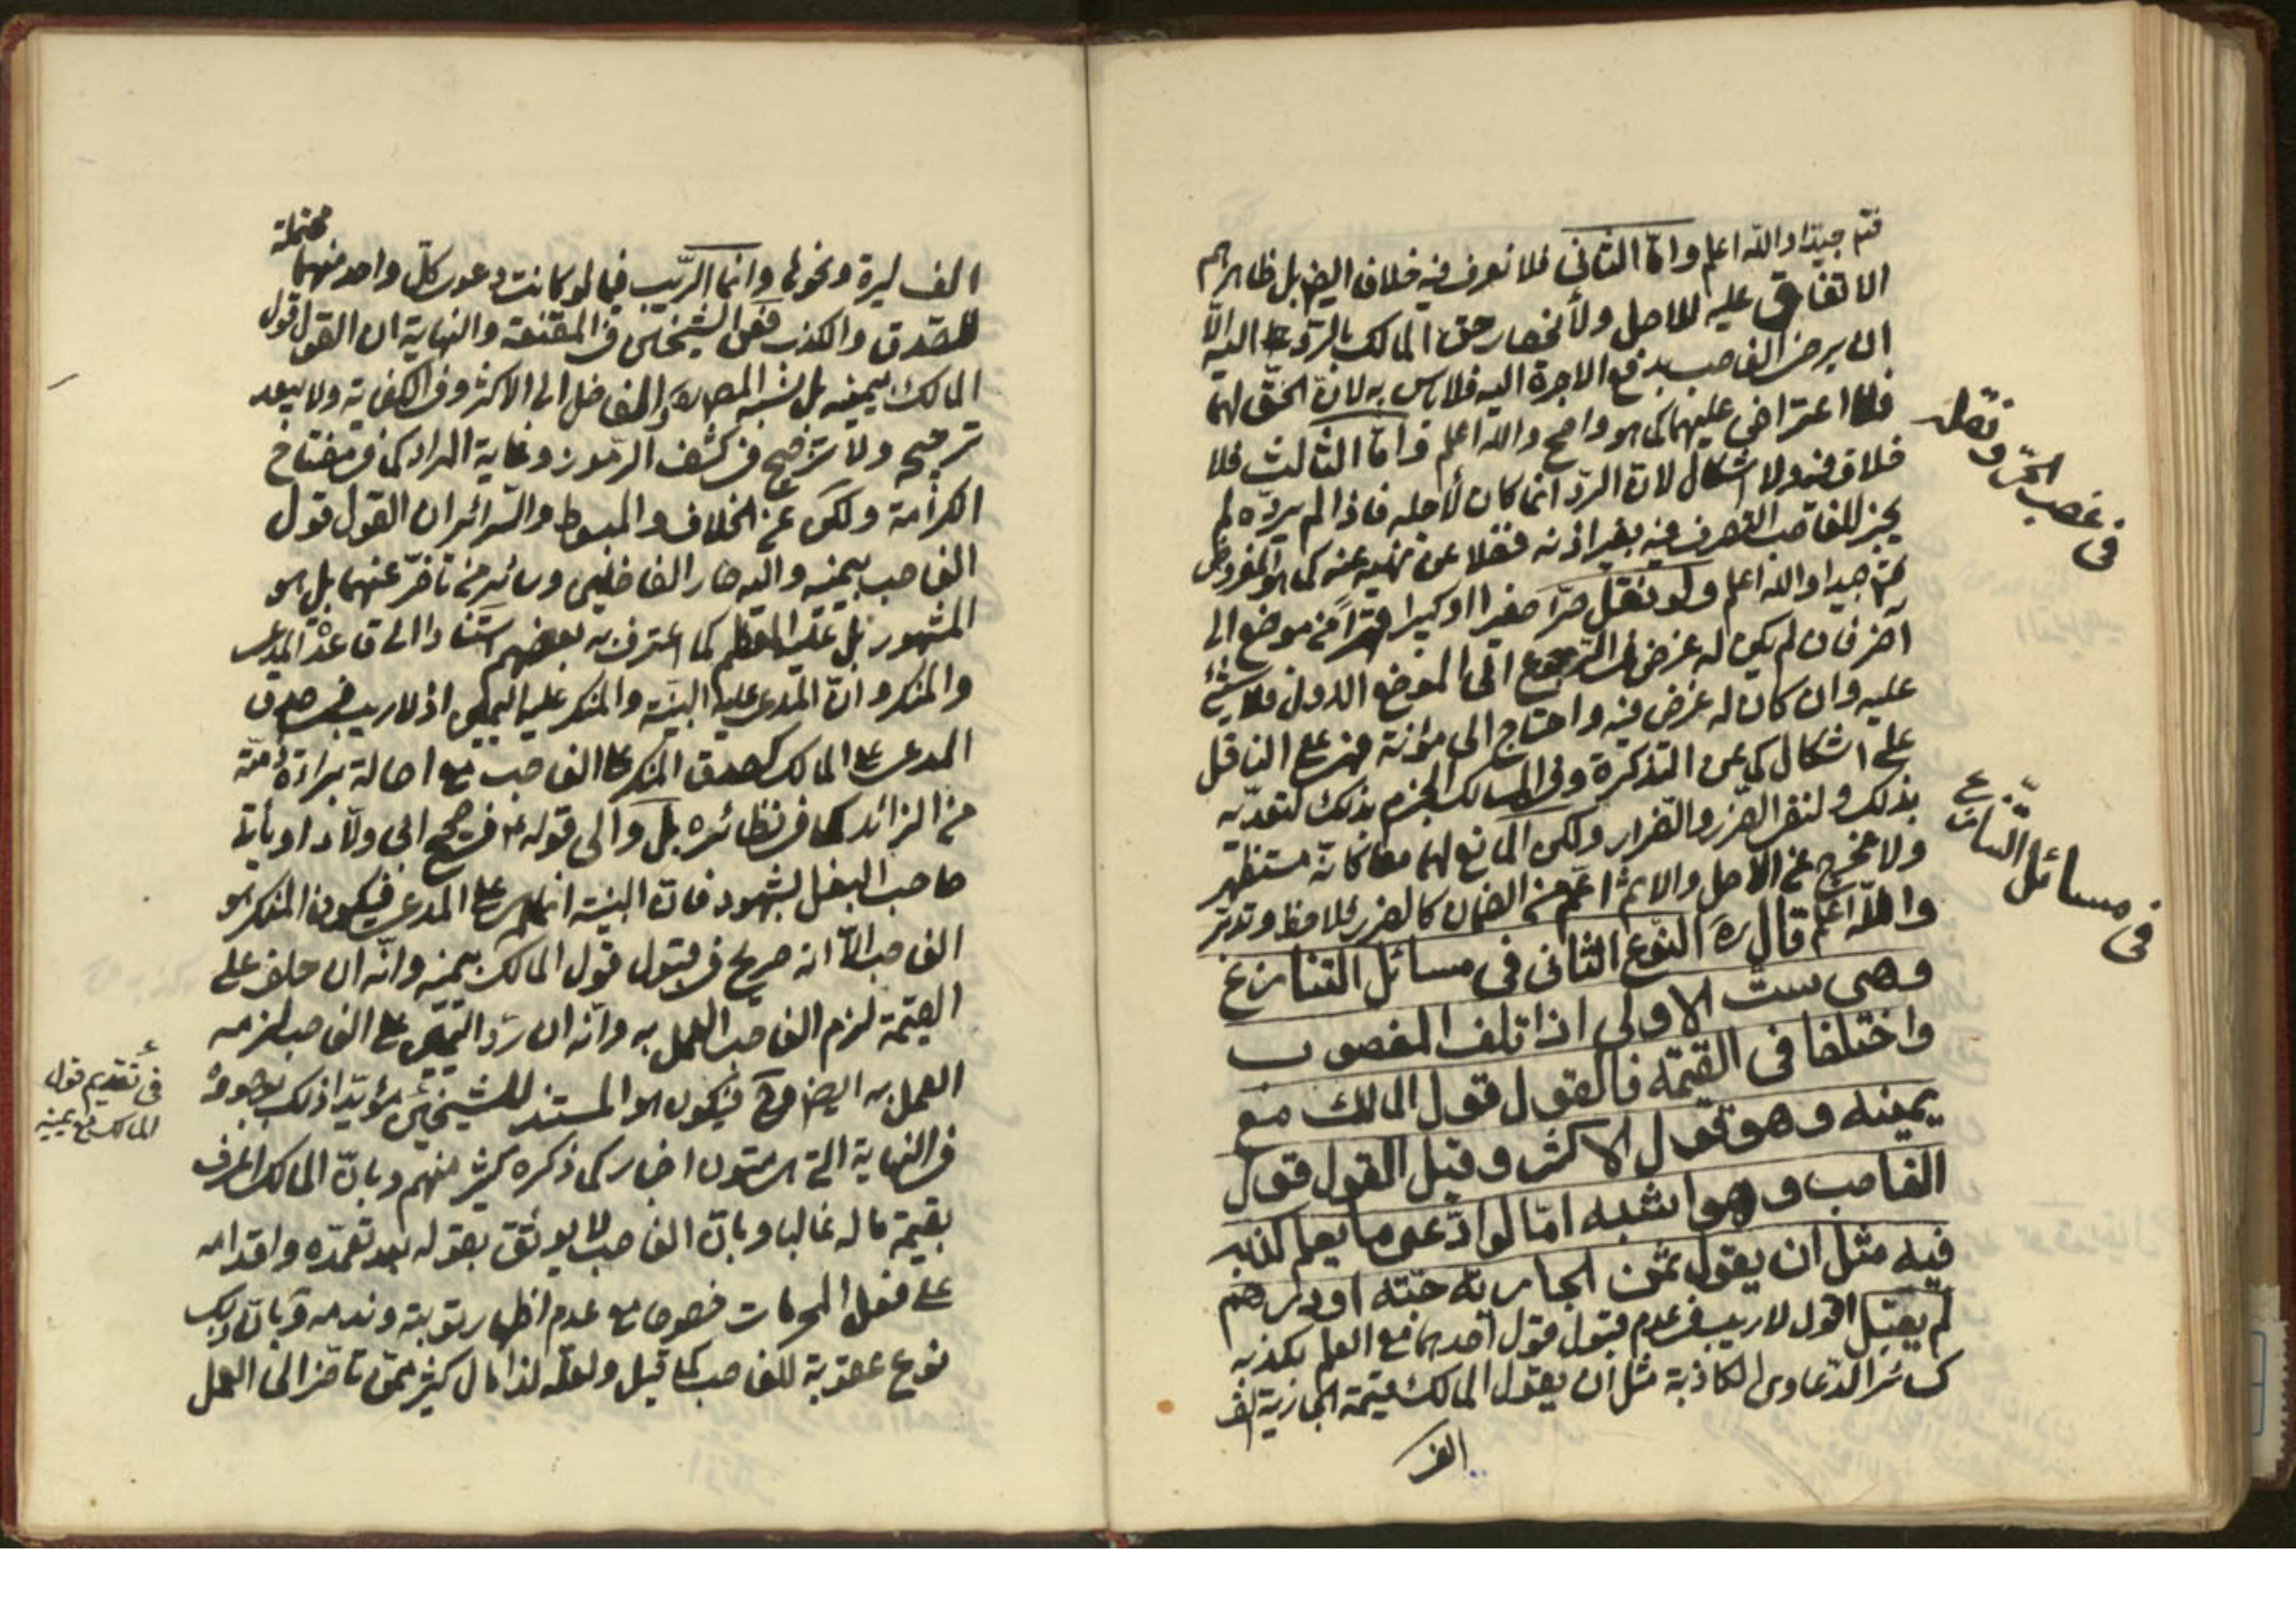 فتم جيدا والله اعلم واما الثانى فلا نعرف فيه خلاف ايضا بل ظاهرهم
الاتفاق عليه للاصل ولأنحصار حق المالك بالرد اليه الا
ان يرضى الغاصب بدفع الاجرة اليه فلا باس به لان الحق لهما
فلا اعتراض عليهما كما هو واضح والله اعلم واما الثالث فلا
خلاف فيه ولا اشكال لان الرد انما كان لأجله فاذا لم يرده لم
يجز للغاصب التصرف فيه بغير اذنه فضلا عن نهيه عنه كما هو المفروض
جيدا والله اعلم ولو نقل حرا صغيرا او كبيرا قهرا من موضع الى
آخر فان لم يكن له غرض فى الرجوع الى الموضع الاول فلا شئ
عليه وان كان له غرض فيه واحتاج الى مؤنة فهى على الناقل
على اشكال كما عن التذكرة وفى المسالك الجزم بذلك لتعديه
بذلك ولنفى الضرر والضرار ولكن المانع لهما معا كانه مستظهر
ولا مخرج عن الاصل والاثم اعم من الضمان كالضرر فلاحظ وتدبر
والله اعلم قال ره النوع الثانى فى مسائل التنازع
وهى ست الاولى اذا تلف المغصوب
واختلفا فى القيمة فالقول قول المالك مع
يمينه وهو قول الاكثر وقيل القول قول
الغاصب وهو اشبه امّا لو ادّعى ما يعلم كذبه
فيه مثل ان يقول ثمن الجارية حبّة او درهم
لم يقبل اقول لا ريب فى عدم قبول قول احدهما مع العلم بكذبه
كسائر الدعاوى الكاذبة مثل ان يقول المالك قيمة الجارية الف
الف
فى غصب الحر ونقله
فى مسائل التنازع
محتملة
الف ليرة ونحوها وانما الريب فيما لو كانت دعوى كل واحد منهما
للصدق والكذب فعن الشيخين فى المقنعة والنهاية ان القول قول
المالك بيمينه بل نسبه المص والفاضل الى الاكثر وفى الكفاية ولا يبعد
ترجيحه ولا ترجيح فى كشف الرموز وغاية المراد كما فى مفتاح
الكرامة ولكن عن الخلاف والمبسوط والسرائر ان القول قول
الغاصب بيمينه واليه صار الفاضلين وسائر من تأخر عنهما بل هو
المشهور بل عليه المعظم كما اعترف به بعضهم استنادا الى قاعدة المدعى
والمنكر وان المدعى عليه البينة والمنكر عليه اليمين اذ لا ريب فى صدق
المدعى على المالك كصدق المنكر على الغاصب مع اصالة براءة ذمته
من الزائد كما فى نظائره بل والى قوله ع فى صحيح ابى ولاد او يأتى
صاحب البغل بشهود فان البينة انما هى على المدعى فيكون المنكر هو
الغاصب الا انه صريح فى قبول قول المالك بيمينه وانه ان حلف على
القيمة لزم الغاصب العمل به وانه ان رد اليمين على الغاصب لزمه
العمل به ايضا وح فيكون هو المستند للشيخين مؤيدا ذلك بوجوده
فى النهاية التى هى متون اخبار كما ذكره كثير منهم وبان المالك اعرف
بقيمة ماله غالبا وبان الغاصب لا يوثق بقوله بعد تعمده واقدامه
على فعل المحرمات خصوصا مع عدم اظهار توبته وندمه وبان ذلك
نوع عقوبة للغاصب كما قيل ولعله لذا مال كثير ممن تأخر الى العمل
فى تقديم قول
المالك مع يمينه